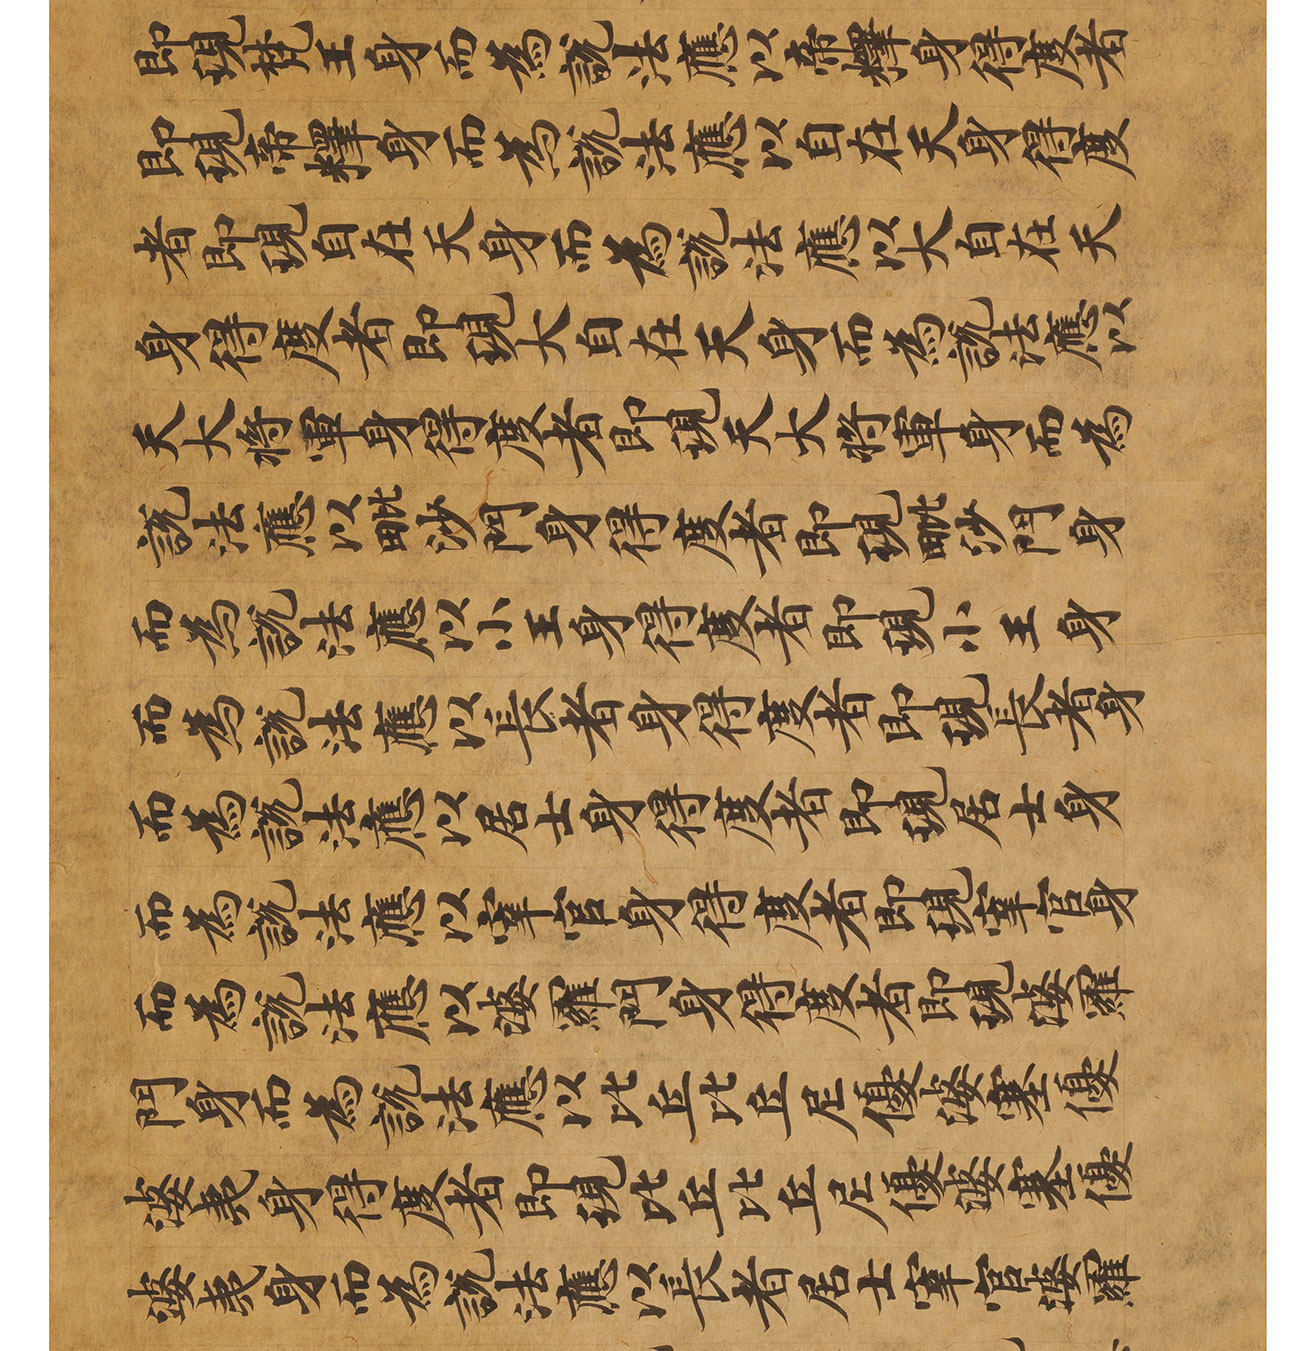 即現梵王身而為說法應以帝釋身得度者
即現帝釋身而為說法應以自在天身得度
者即現自在天身而為說法應以大自在天
身得度者即現大自在天身而為說法應以
天大將軍身得度者即現天大將軍身而為
說法應以毗沙門身得度者即現毗沙門身
而為說法應以小王身得度者即現小王身
而為說法應以長者身得度者即現長者身
而為說法應以居士身得度者即現居士身
而為說法應以宰官身得度者即現宰官身
而為說法應以婆羅門身得度者即現婆羅
門身而為說法應以比丘比丘尼優婆塞優
婆夷身得度者即現比丘比丘尼優婆塞優
婆夷身而為說法應以長者居士宰官婆羅